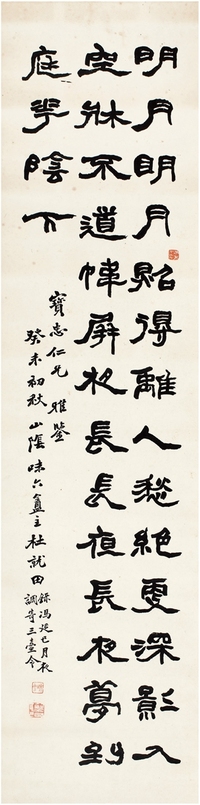 明月明月照得離人愁絕更深影入
空牀不道幃屏夜長長夜長夜夢到
庭華陰下
寶忠仁兄雅鑒
癸未初秋山陰味六盦主杜就田
錄馮延巳月夜
調寄三臺令